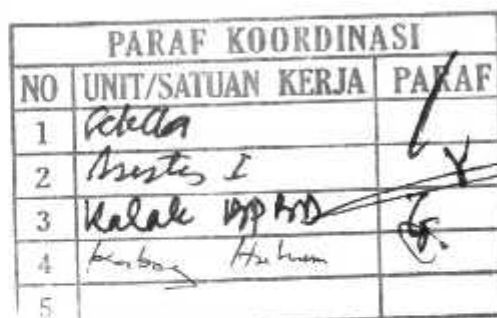 PARAF KOORDINASI
NO UNIT/SATUAN KERJA PARAF
1 Sekda
2 Asisten I
3 Kalak BPBD
4 Kabag Hukum
5